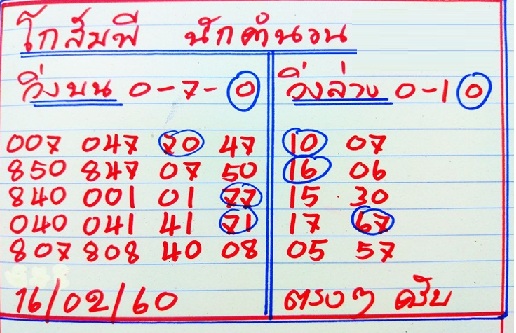 โกส้มพี นักคำนวน
วิ่งบน 0-7-0
007 047 70 47
850 847 07 50
840 001 01 77
040 041 41 71
807 808 40 08
16/02/60
วิ่งล่าง 0-10
10 07
16 06
15 30
17 67
05 57
ตรงๆ ครับ